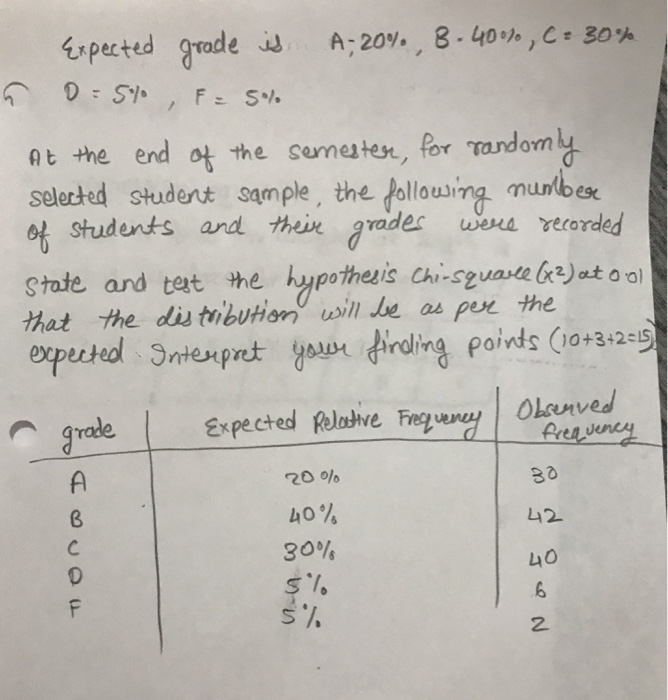 Expected grade is A-20%, B-40%, C=30%
D = 5%, F = 5%
At the end of the semester, for randomly
selected student sample, the following number
of students and their grades were recorded
State and test the hypothesis Chi-square (x²) at 0.01
that the distribution will be as per the
expected. Interpret your finding points (10+3+2=15)
grade Expected Relative Frequency Observed frequency
A 20% 30
B 40% 42
C 30% 40
D 5% 6
F 5% 2